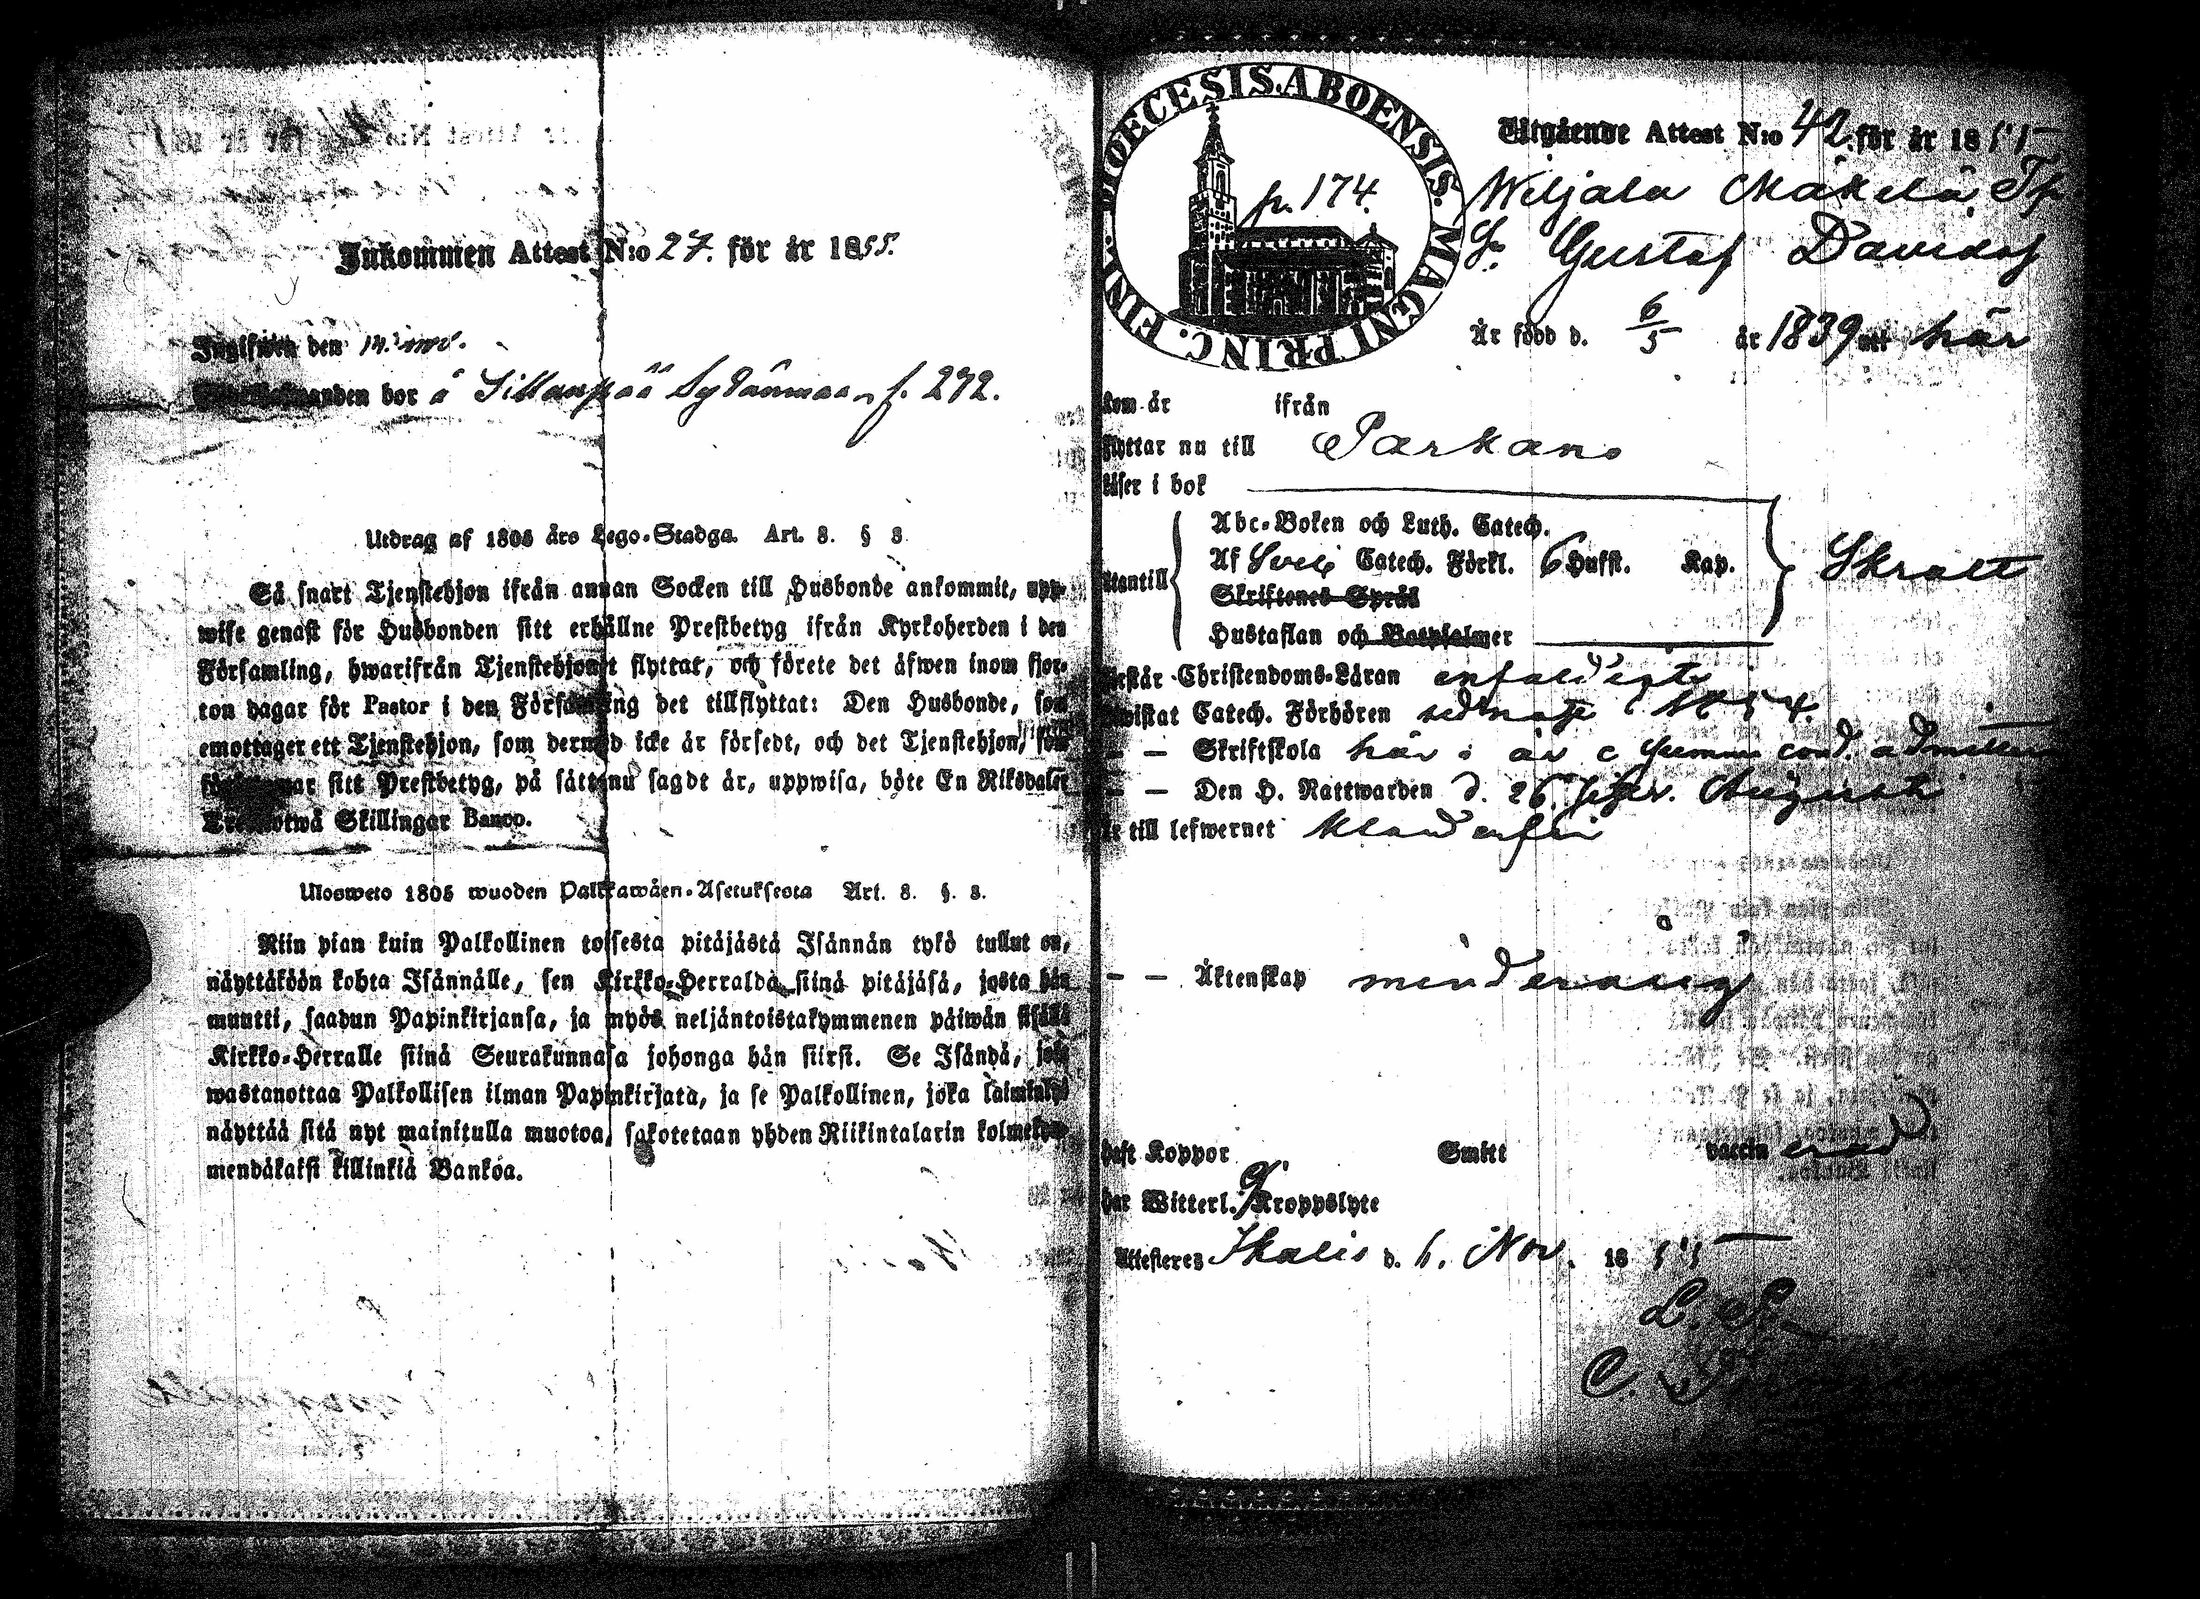 Inkommen Attest N:o 27. för år 1855.
Ingifwen den 14. nov.
bor å Sillanpää Sydänmaa, f. 292.
Utdrag af 1805 års Lego-Stadga. Art. 8. § 8
Så snart Tjenstehjon ifrån annan Socken till Husbonde ankommit, upp-
wise genast för Husbonden sitt erhållne Prestbetyg ifrån Kyrkoherden i den
Församling, hwarifrån Tjenstehjonet flyttat, och förete det äfwen inom fjor-
ton dagar för Pastor i den Församling det tillflyttat: Den Husbonde, som
emottager ett Tjenstehjon, som dermed icke är försedt, och det Tjenstehjon, som
sitt Prestbetyg, på sätt nu sagdt är, uppwisa, böte En Riksdaler
Trettiotwå Skillingar Banco.
Uloswето 1805 wuoden Palkkawäen-Asetuksesta Art. 8. §. 8.
Niin pian kuin Palkollinen toisesta pitäjästä Isännän tykö tullut on,
näyttäköön kohta Isännälle, sen Kirkko-Herralda siinä pitäjäsä, josta hän
muutti, saadun Papinkirjansa, ja myös neljäntoistakymmenen päiwän sisällä
Kirkko-Herralle siinä Seurakunnasa johonga hän siirsi. Se Isändä, joka
wastanottaa Palkollisen ilman Papinkirjata, ja se Palkollinen, joka laiminlyö
näyttää sitä nyt mainitulla muotoa, sakotetaan yhden Riikintalarin kolmekym-
mendäkaksi killinkiä Bankoa.
DIOECESIS. ABOENSIS. MAGNI PRINC. FINL.
p. 174.
Utgående Attest N:o 42. för år 1855
Wiljala Mäkelä, Tp
S. Gustaf Davidsf
Är född d. 6/5 år 1839 uti här
Kom år ifrån
Flyttar nu till Parkano
Läser i bok
Utantill
Abc-Boken och Luth. Catech.
Af Sveb Catech. Förkl. 6 Hufst. Kap.
Skriftenes Språk
Hustaflan och Botpsalmer
Skralt
Förstår Christendoms-Läran enfaldigt
Bewistat Catech. Förhören sednast 1854.
– – Skriftskola här i år c
– – Den H. Nattwarden d. 26. Augusti
Är till lefwernet klanderfri
– – Äktenskap minderårig
haft Koppor Smitt vaccin erad
har Witterl. Kroppslyte
Attesteres Ikalis d. 6. Nov. 1855
L. S.